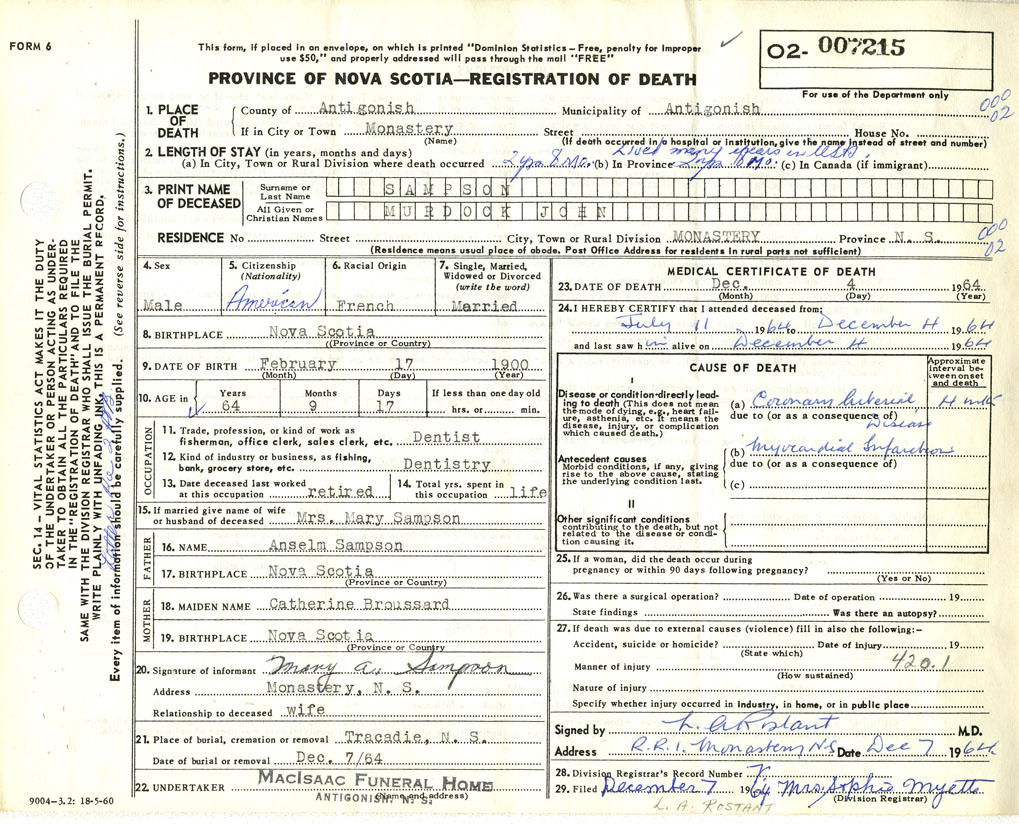 FORM 6
This form, if placed in an envelope, on which is printed "Dominion Statistics – Free, penalty for improper
use $50," and properly addressed will pass through the mail "FREE"
02- 007215
For use of the Department only
PROVINCE OF NOVA SCOTIA—REGISTRATION OF DEATH
000
02
1. PLACE OF DEATH
County of Antigonish Municipality of Antigonish
If in City or Town Monastery Street House No.
(Name) (If death occurred in a hospital or institution, give the name instead of street and number)
2. LENGTH OF STAY (in years, months and days) Lived many years in USA.
(a) In City, Town or Rural Division where death occurred 2 yrs 8 Mo. (b) In Province 2 yrs 8 Mo. (c) In Canada (if immigrant)
3. PRINT NAME OF DECEASED
Surname or Last Name SAMPSON
All Given or Christian Names MURDOCK JOHN
RESIDENCE No Street City, Town or Rural Division MONASTERY Province N. S.
000
02
(Residence means usual place of abode. Post Office Address for residents in rural parts not sufficient)
4. Sex
Male
5. Citizenship
(Nationality)
American
6. Racial Origin
French
7. Single, Married,
Widowed or Divorced
(write the word)
Married
8. BIRTHPLACE Nova Scotia
(Province or Country)
9. DATE OF BIRTH February 17 1900
(Month) (Day) (Year)
10. AGE in Years Months Days If less than one day old
64 9 17 hrs. or min.
OCCUPATION
11. Trade, profession, or kind of work as
fisherman, office clerk, sales clerk, etc. Dentist
12. Kind of industry or business, as fishing,
bank, grocery store, etc. Dentistry
13. Date deceased last worked
at this occupation retired
14. Total yrs. spent in
this occupation life
15. If married give name of wife
or husband of deceased Mrs. Mary Sampson
FATHER
16. NAME Anselm Sampson
17. BIRTHPLACE Nova Scotia
(Province or Country)
MOTHER
18. MAIDEN NAME Catherine Broussard
19. BIRTHPLACE Nova Scotia
(Province or Country)
20. Signature of informant Mary A. Sampson
Address Monastery, N. S.
Relationship to deceased wife
21. Place of burial, cremation or removal Tracadie, N. S.
Date of burial or removal Dec. 7/64
22. UNDERTAKER MACISAAC FUNERAL HOME
ANTIGONISH, N. S.
(Name and address)
MEDICAL CERTIFICATE OF DEATH
23. DATE OF DEATH Dec. 4 1964
(Month) (Day) (Year)
24. I HEREBY CERTIFY that I attended deceased from:
July 11 1964 to December 4 1964
and last saw him alive on December 4 1964
CAUSE OF DEATH
Approximate
interval be-
tween onset
and death
I
Disease or condition directly lead-
ing to death (This does not mean
the mode of dying, e.g., heart fail-
ure, asthenia, etc. It means the
disease, injury, or complication
which caused death.)
(a) Coronary Arterial 4 mths
due to (or as a consequence of)
Disease
Antecedent causes
Morbid conditions, if any, giving
rise to the above cause, stating
the underlying condition last.
(b) Myocardial Infarction
due to (or as a consequence of)
(c)
II
Other significant conditions
contributing to the death, but not
related to the disease or condi-
tion causing it.
25. If a woman, did the death occur during
pregnancy or within 90 days following pregnancy?
(Yes or No)
26. Was there a surgical operation? Date of operation 19
State findings Was there an autopsy?
27. If death was due to external causes (violence) fill in also the following:–
Accident, suicide or homicide? Date of injury 19
(State which)
Manner of injury 420.1
(How sustained)
Nature of injury
Specify whether injury occurred in industry, in home, or in public place
Signed by L. A Rostant M.D.
Address R.R.1, Monastery NS Date Dec 7 1964
28. Division Registrar's Record Number
29. Filed December 7 1964 Mrs. Sophie Myette
(Division Registrar)
L. A. ROSTANT
9004–3.2: 18-5-60
SEC. 14 – VITAL STATISTICS ACT MAKES IT THE DUTY
OF THE UNDERTAKER OR PERSON ACTING AS UNDER-
TAKER TO OBTAIN ALL THE PARTICULARS REQUIRED
IN THE "REGISTRATION OF DEATH" AND TO FILE THE
SAME WITH THE DIVISION REGISTRAR WHO SHALL ISSUE THE BURIAL PERMIT.
WRITE PLAINLY WITH UNFADING INK, THIS IS A PERMANENT RECORD.
Every item of information should be carefully supplied. (See reverse side for instructions.)